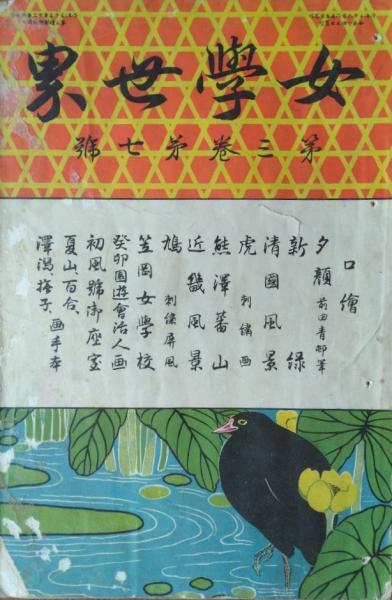 女學世界
第三卷第七號
口繪
夕顔 前田青邨筆
新綠
清國風景
虎 刺繡画
熊澤蕃山
近畿風景
鳩 刺繡屏風
笠岡女學校
癸卯園遊會活人画
初風號御座室
夏山、百合、
澤瀉、撫子、画手本